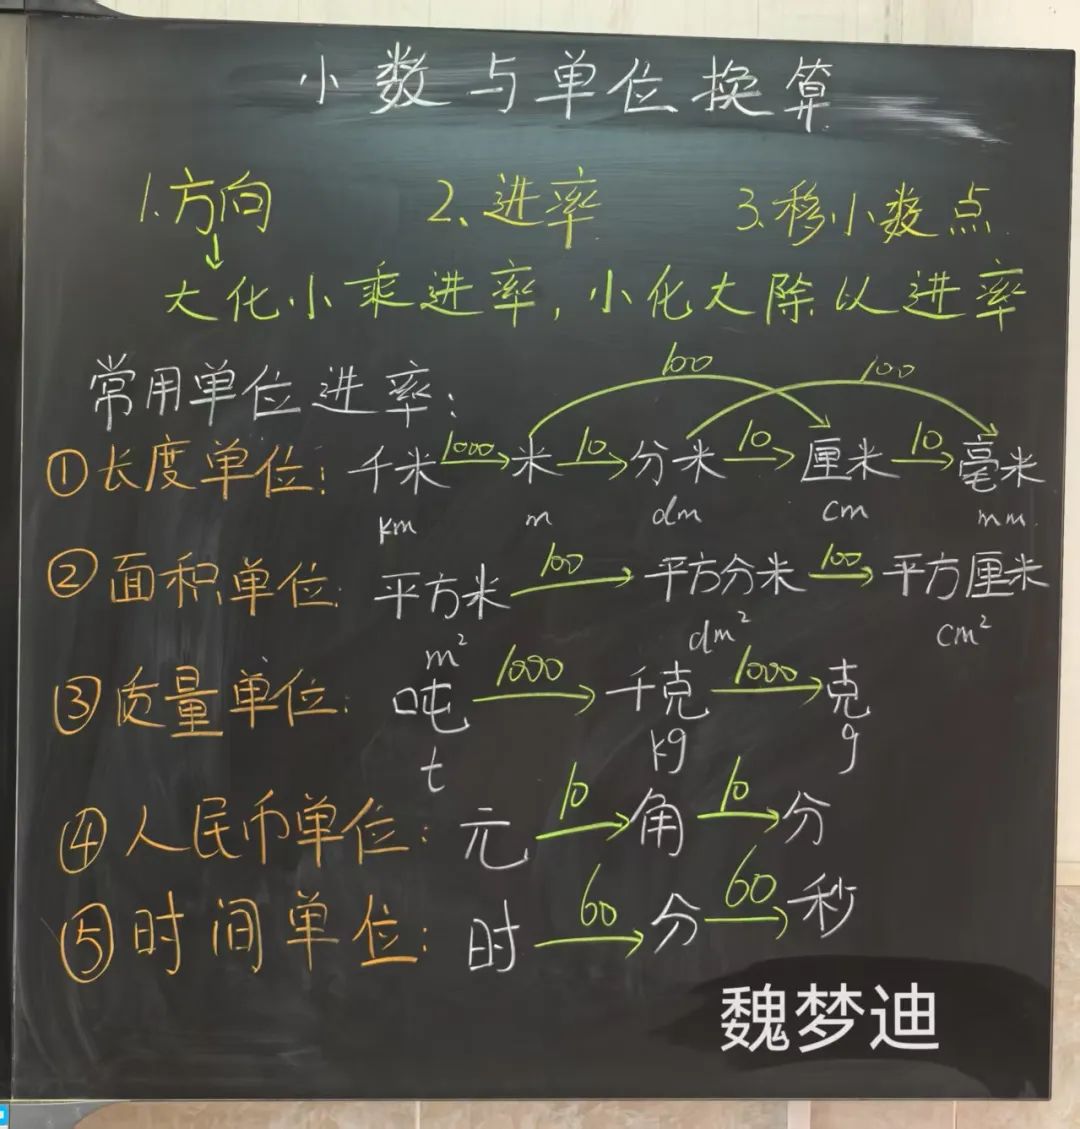 小数与单位换算
1.方向 2、进率 3.移小数点
↓
大化小乘进率,小化大除以进率
100 100
常用单位进率:
①长度单位: 千米 1000→ 米 10→ 分米 10→ 厘米 10→ 毫米
km m dm cm mm
②面积单位: 平方米 100→ 平方分米 100→ 平方厘米
m² dm² cm²
③质量单位: 吨 1000→ 千克 1000→ 克
t kg g
④人民币单位: 元 10→ 角 10→ 分
⑤时间单位: 时 60→ 分 60→ 秒
魏梦迪